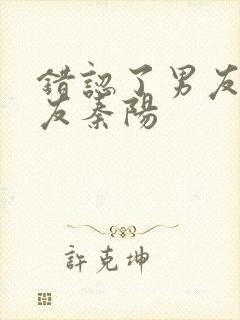 錯認了男友
友秦陽
許克坤